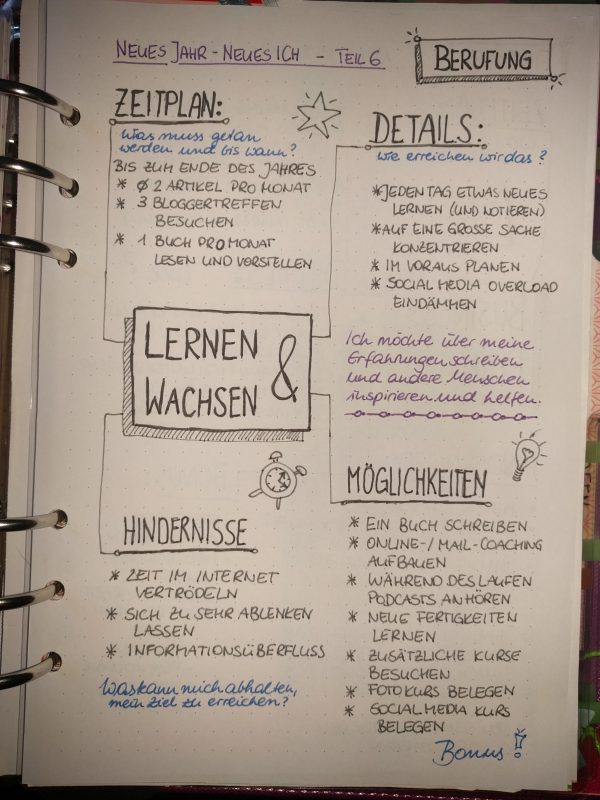 NEUES JAHR - NEUES ICH - TEIL 6
BERUFUNG
ZEITPLAN:
Was muss getan
werden und bis wann?
BIS ZUM ENDE DES JAHRES
* Ø 2 ARTIKEL PRO MONAT
* 3 BLOGGERTREFFEN
BESUCHEN
* 1 BUCH PRO MONAT
LESEN UND VORSTELLEN
DETAILS:
Wie erreichen wir das?
* JEDEN TAG ETWAS NEUES
LERNEN (UND NOTIEREN)
* AUF EINE GROSSE SACHE
KONZENTRIEREN
* IM VORAUS PLANEN
* SOCIAL MEDIA OVERLOAD
EINDÄMMEN
Ich möchte über meine
Erfahrungen schreiben
und andere Menschen
inspirieren und helfen.
LERNEN &
WACHSEN
HINDERNISSE
* ZEIT IM INTERNET
VERTRÖDELN
* SICH ZU SEHR ABLENKEN
LASSEN
* INFORMATIONSÜBERFLUSS
Was kann mich abhalten,
mein Ziel zu erreichen?
MÖGLICHKEITEN
* EIN BUCH SCHREIBEN
* ONLINE-/MAIL-COACHING
AUFBAUEN
* WÄHREND DES LAUFEN
PODCASTS ANHÖREN
* NEUE FERTIGKEITEN
LERNEN
* ZUSÄTZLICHE KURSE
BESUCHEN
* FOTOKURS BELEGEN
* SOCIAL MEDIA KURS
BELEGEN
Bonus!